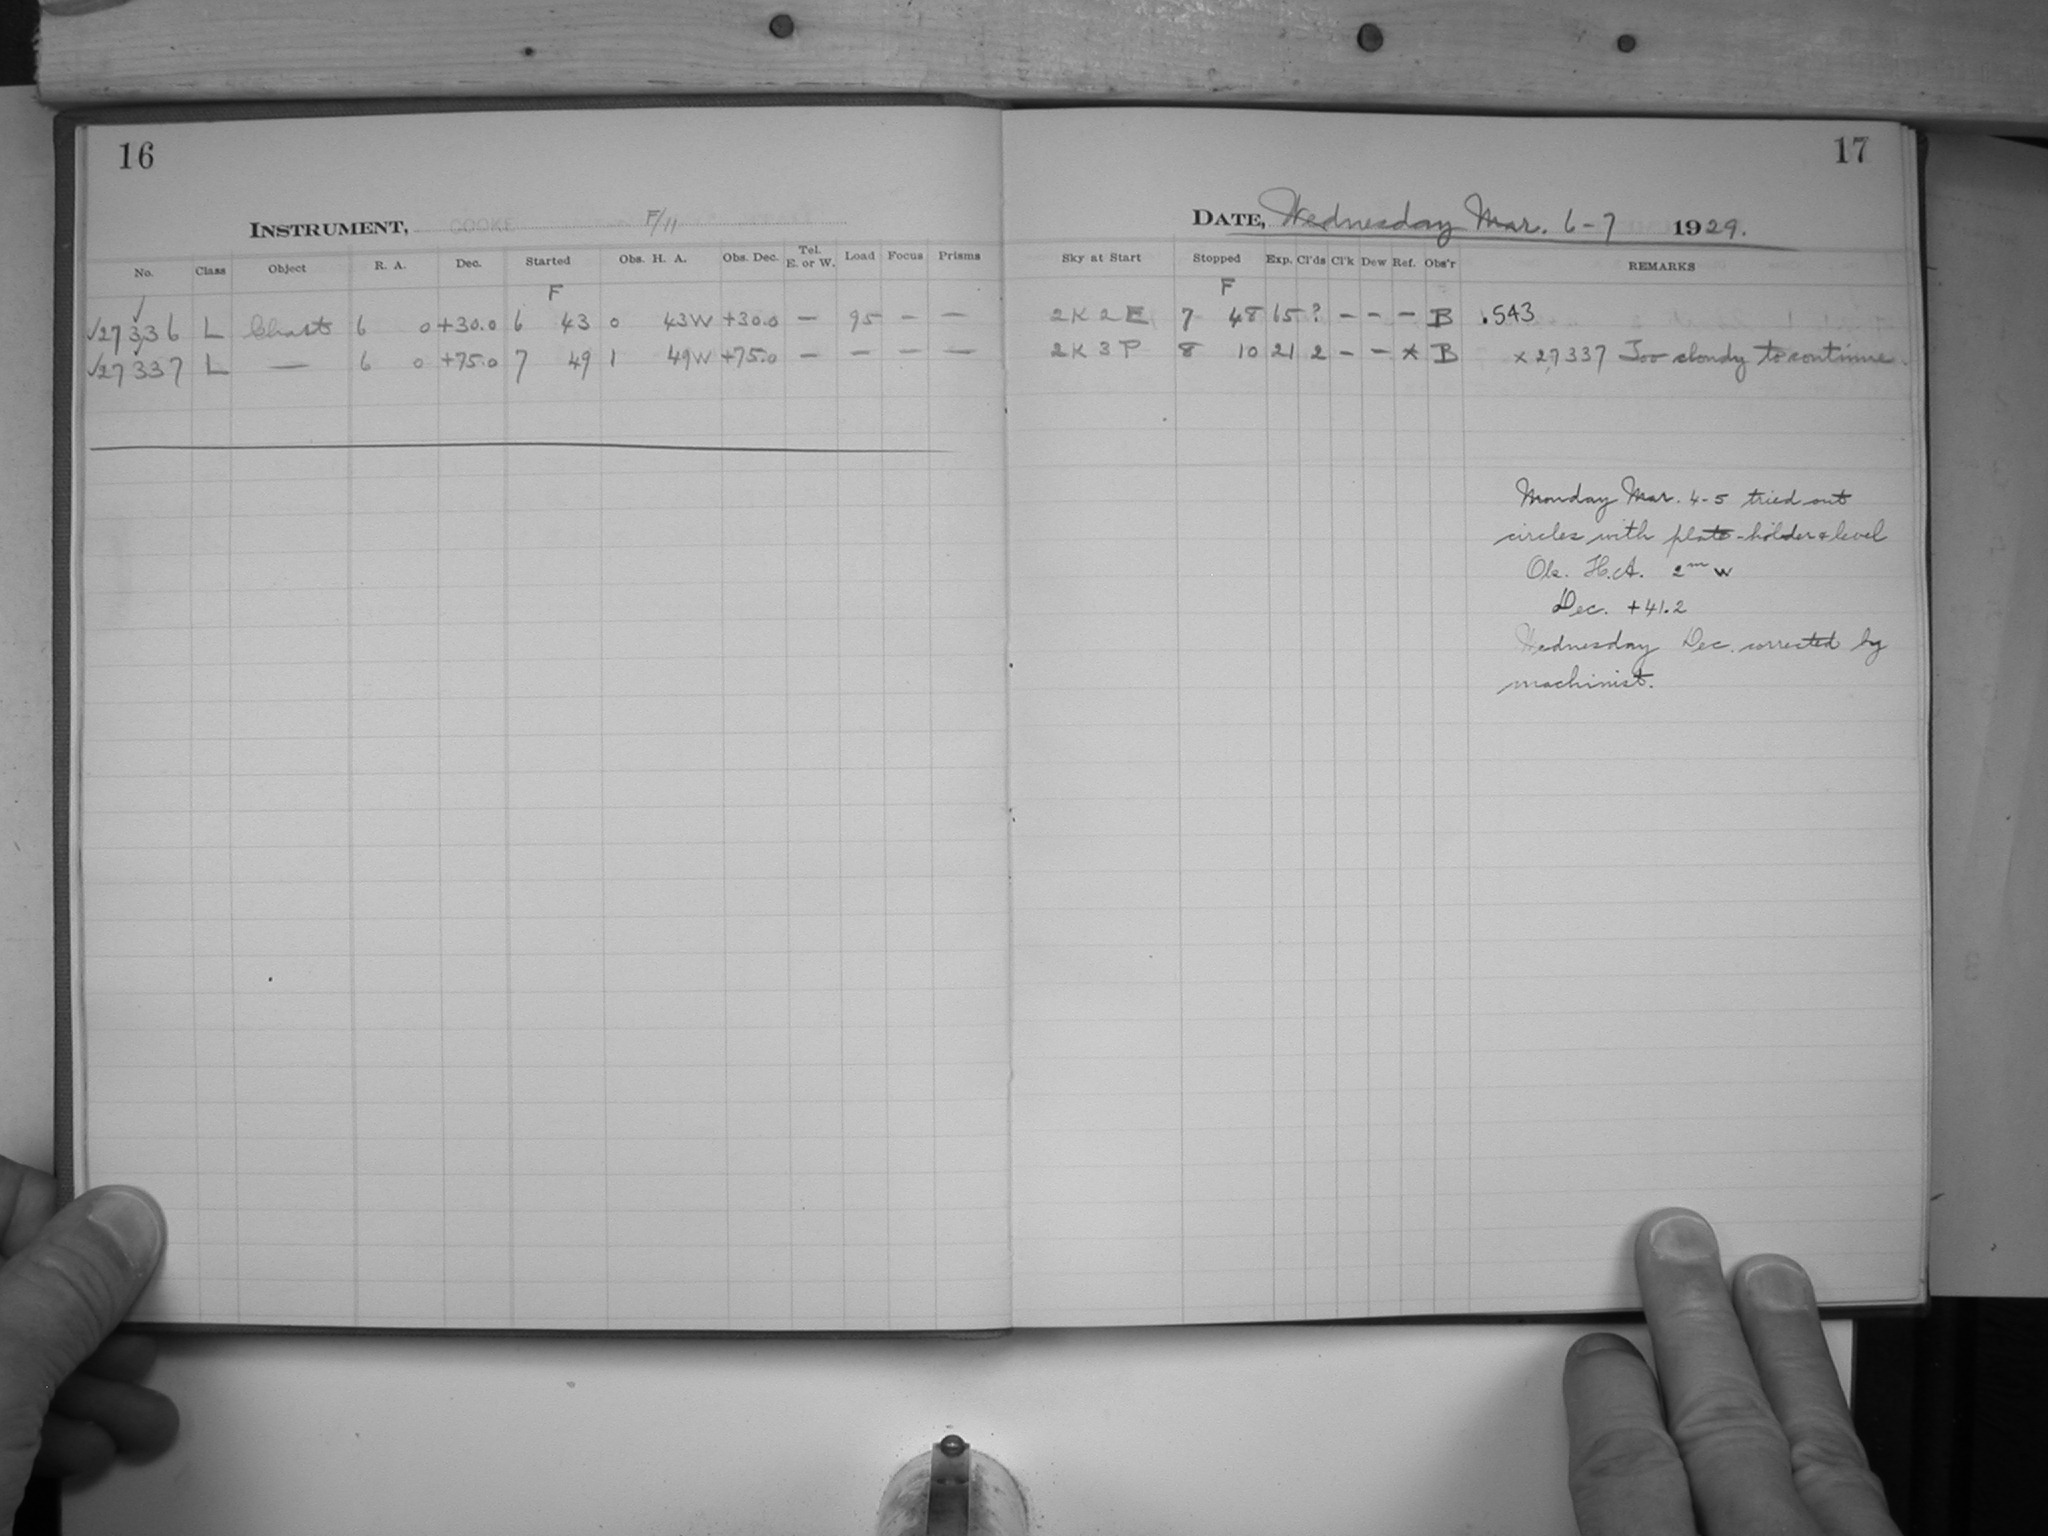 16
INSTRUMENT, COOKE F/11
No. Class Object R. A. Dec. Started Obs. H. A. Obs. Dec. Tel. E. or W. Load Focus Prisms
F
√27336 L Chart 6 0 +30.0 6 43 0 43W +30.0 — 95 — —
√27337 L — 6 0 +75.0 7 49 1 49W +75.0 — — — —
17
DATE, Wednesday Mar. 6-7 1929.
Sky at Start Stopped Exp. Cl'ds Cl'k Dew Ref. Obs'r REMARKS
F
2K2E 7 48 65 ? - - - B .543
2K3P 8 10 21 2 - - * B × 27337 Too cloudy to continue.
Monday Mar. 4-5 tried out
circles with plate-holder & level
Ob. H.A. 2m W
Dec. +41.2
Wednesday Dec. corrected by
machinist.